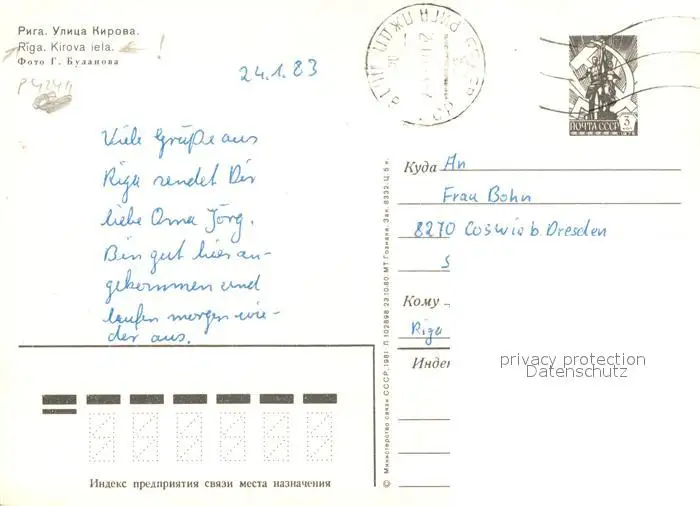 Рига. Улица Кирова.
Rīga. Kirova iela.
Фото Г. Буланова
24.1.83
Viele Grüße aus
Riga sendet Dir
liebe Oma Jörg.
Bin gut hier an-
gekommen und
laufen morgen wie-
der aus.
ПОЧТА СССР 3
1976
Куда An
Frau Bohn
8270 Coswig b. Dresden
S
Кому
Riga
Индек
privacy protection
Datenschutz
Индекс предприятия связи места назначения
© Министерство связи СССР, 1981. Л 102898. 23.10.80. МТ Гознака. Зак. 8332. Ц. 5 к.